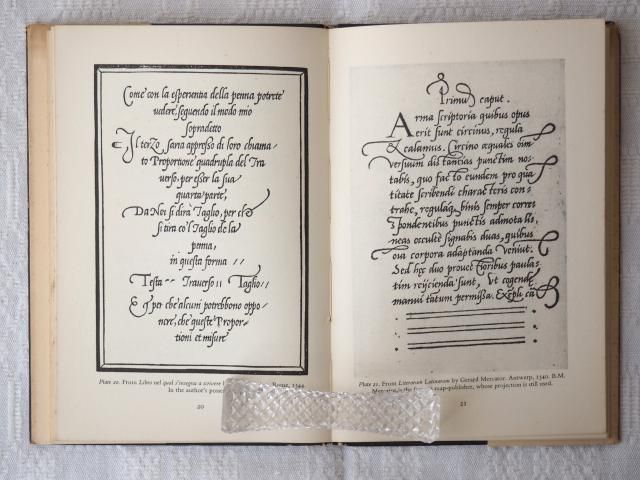 Come con la esperientia della penna potrete
vedere, seguendo il modo mio
sopradetto
Il terzo sara appresso di loro chiama-
to Proportione quadrupla del Tra
uerso, per esser la sua
quarta parte,
Da Noi si dirà Taglio, per che
si tira co'l Taglio de la
penna,
in questa forma //
Testa -- Trauerso :: Taglio //
Et per che alcuni potrebbono oppo-
nere, che queste Propor-
tioni et misure
Plate 20. From Libro nel qual s'insegna a scrivere Rome, 1544
In the author's
20
Primum caput.
Arma scriptoria quibus opus
erit sunt circinus, regula
& calamus. Circino æquales oim
versuum distantias punctim no-
tabis, quo facto eundem pro qua
titate scribendi characteris con-
trahe, regulaq binis semper corres
spondentibus punctis admota lis,
neas occultè signabis duas, quibus
oua corpora adaptanda veniut.
Sed hec duo prouectioribus paula-
tim reijcienda sunt, Ut cogende
manui tatum permissa. Expli ca
Plate 21. From Literarum Latinarum by Gerard Mercator. Antwerp, 1540. B.M.
Mercator is the map-publisher, whose projection is still used.
21